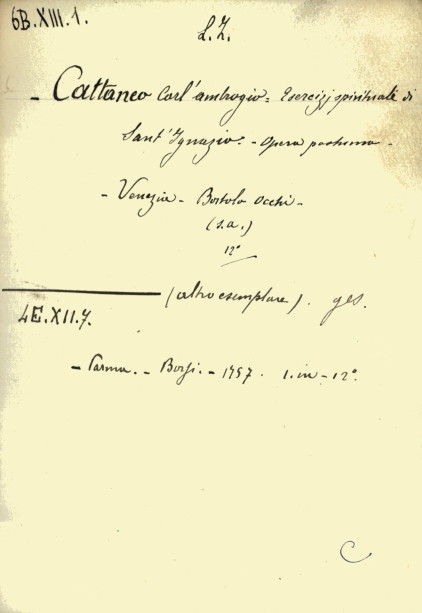 6B.XIII.1.
L.Z.
- Cattaneo Carl'ambrogio = Esercizj spirituali di
Sant'Ignazio. - Opera postuma -
- Venezia - Bortolo Occhi -
(s.a.)
12°
(altro esemplare). ges.
4E.XII.7.
- Parma. - Borsi. - 1757. 1. in - 12°.
C